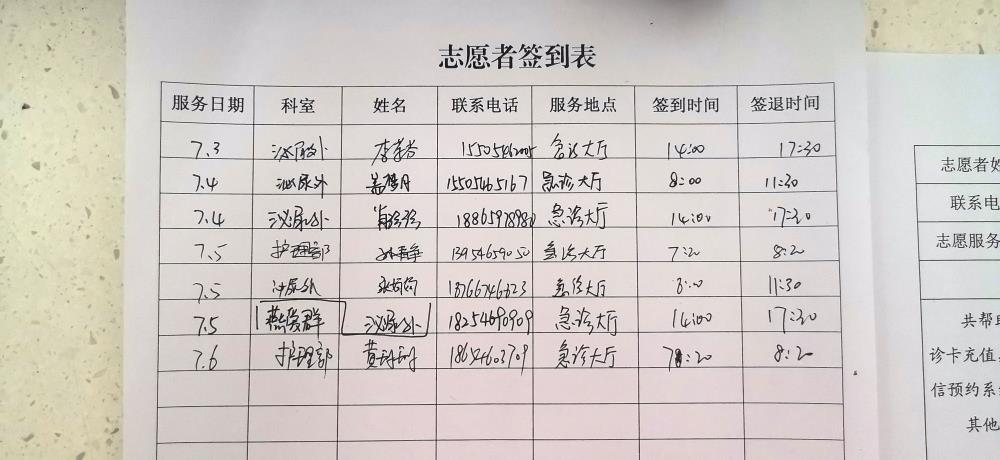 志愿者签到表
服务日期 科室 姓名 联系电话 服务地点 签到时间 签退时间
7.3 泌尿外 急诊大厅 14:00 17:30
7.4 泌尿外 15505465167 急诊大厅 8:00 11:30
7.4 泌尿外 18865978980 急诊大厅 14:00 17:30
7.5 护理部 13954659050 急诊大厅 7:20 8:20
7.5 泌尿外 13766746823 急诊大厅 8:00 11:30
7.5 燕爱群 泌尿外 18254690909 急诊大厅 14:00 17:30
7.6 护理部 18654603709 急诊大厅 8:20
志愿者姓
联系电
志愿服务
共帮助
诊卡充值
信预约系
其他